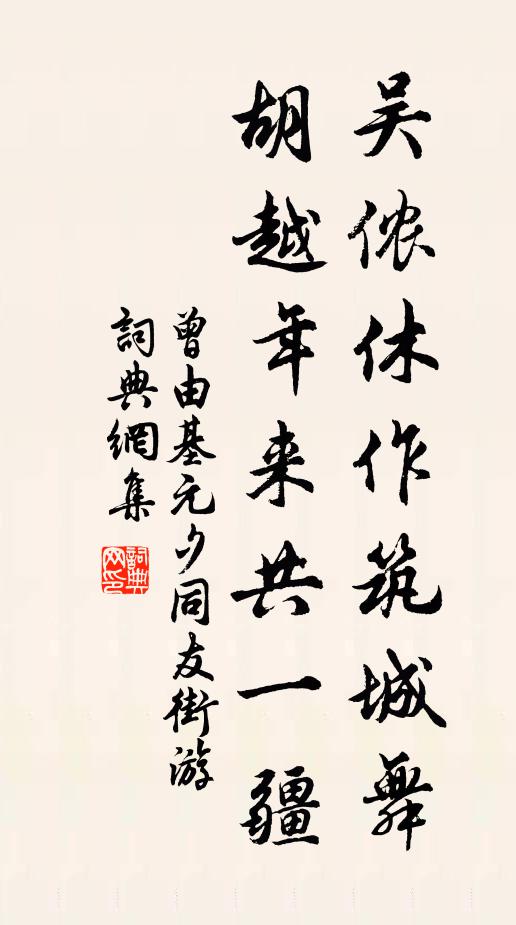 吴侬休作筑城舞
胡越年来共一疆
曾由基元夕同友街游
詞典網集
詞典网印